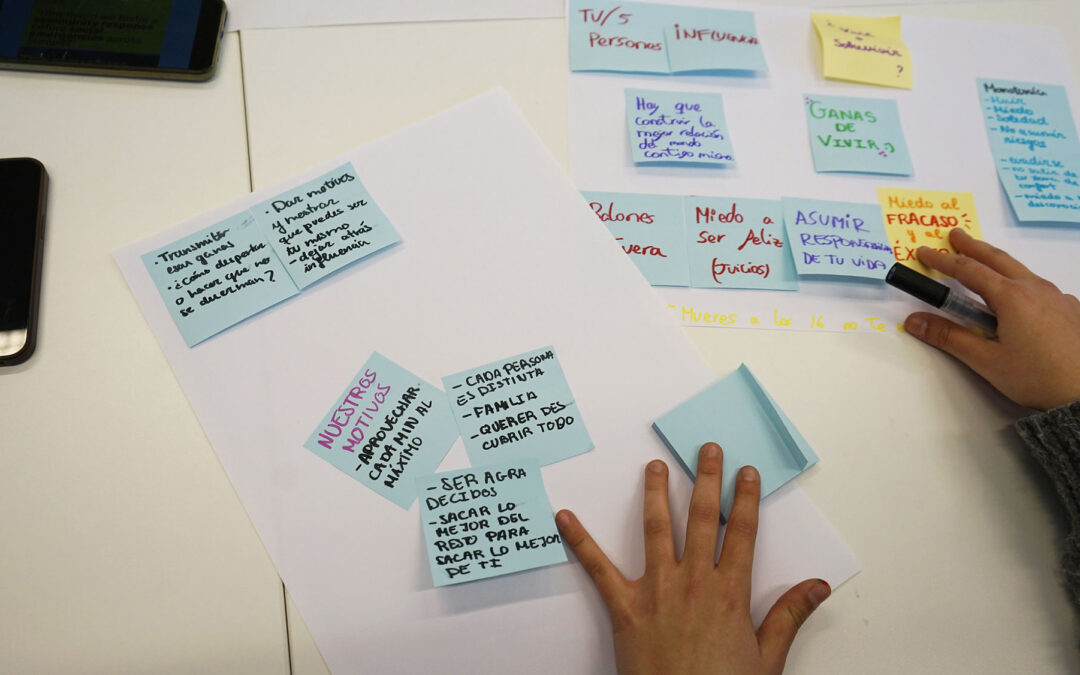 TU/5
Persones
INFLUENCIA
¿Vivir o
Sobrevivir
?
Hay que
construir la
mejor relación
del mundo
contigo mismo.
GANAS
DE
VIVIR :)
Monotonía
- Huir
- Miedo
- Soledad
- No asumir
riesgos
- evadirse
- no salir de
tu zona de
confort
- miedo a
Miedo a
ser feliz
(Juicios)
ASUMIR
DE TU VIDA
Miedo al
FRACASO
y al
Mueres a los 16 no Te
• Transmitir
esas ganas
• ¿Cómo despertar
o hacer que no
se duerman?
• Dar motivos
y mostrar
que puedes ser
tu mismo
- dejar atrás
influencia
NUESTROS
MOTIVOS
- APROVECHAR
CADA MIN AL
MÁXIMO
- CADA PERSONA
ES DISTINTA
- FAMILIA
- QUERER DES
CUBRIR TODO
- SER AGRA
DECIDOS
- SACAR LO
MEJOR DEL
RESTO PARA
SACAR LO MEJOR
DE TI